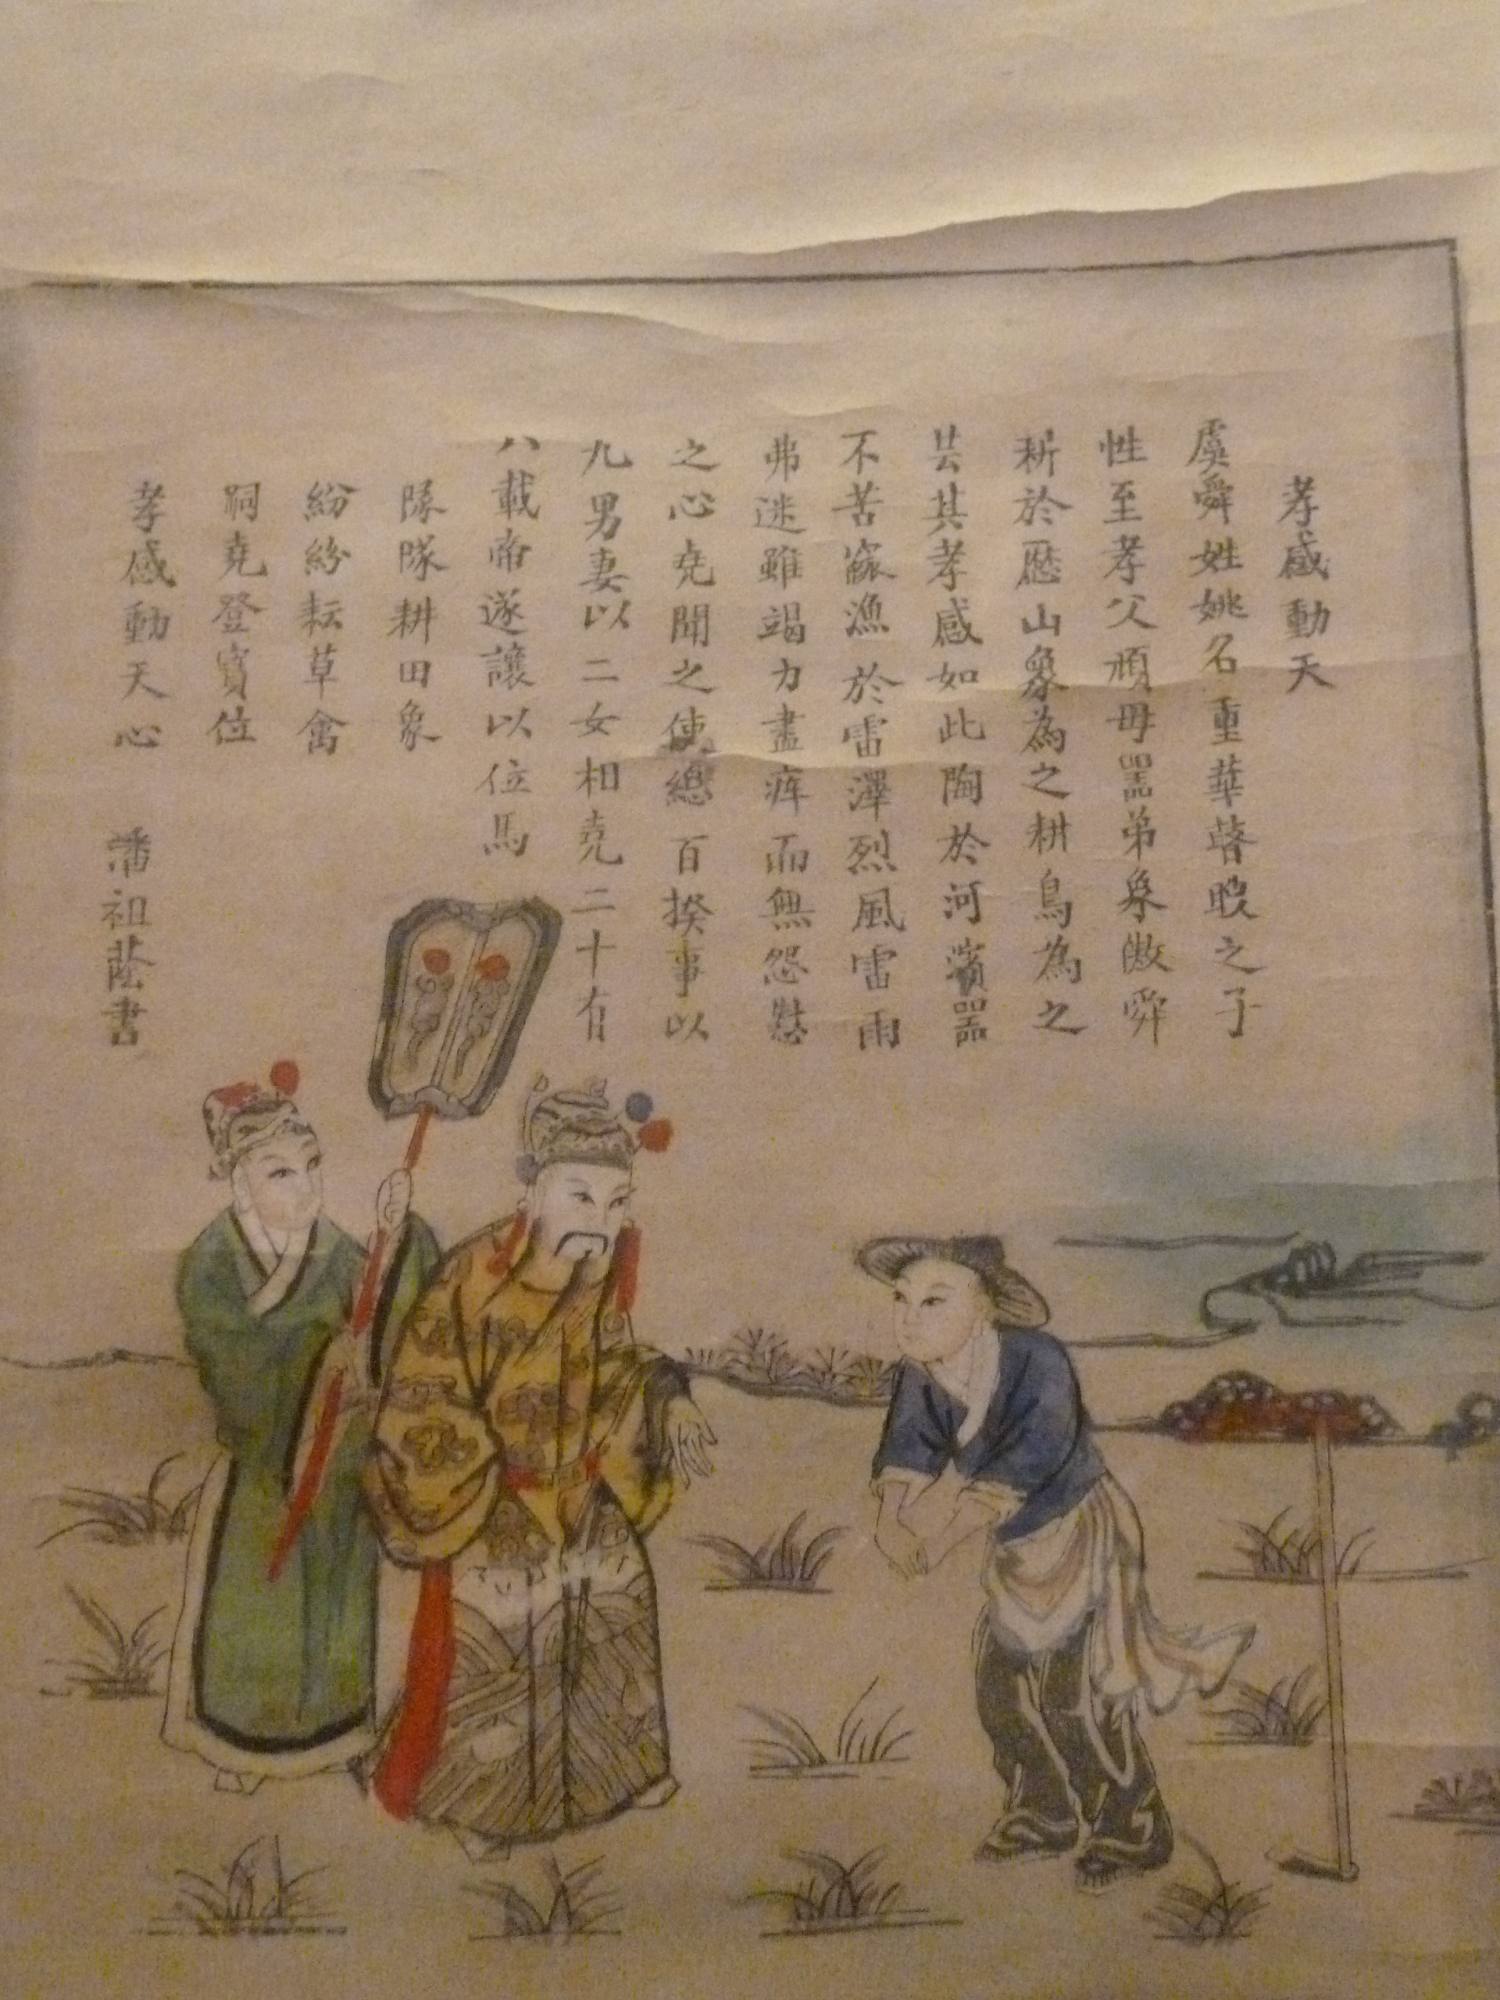 孝感動天
虞舜姓姚名重華瞽瞍之子
性至孝父頑母嚚弟象傲舜
耕於歷山象為之耕鳥為之
芸其孝感如此陶於河濱器
不苦窳漁於雷澤烈風雷雨
弗迷雖竭力盡瘁而無怨懟
之心堯聞之使總百揆事以
九男妻以二女相堯二十有
八載帝遂讓以位焉
隊隊耕田象
紛紛耘草禽
嗣堯登寶位
孝感動天心
潘祖蔭書